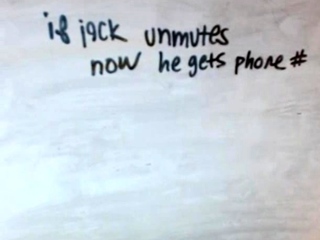 if jack unmutes
now he gets phone #